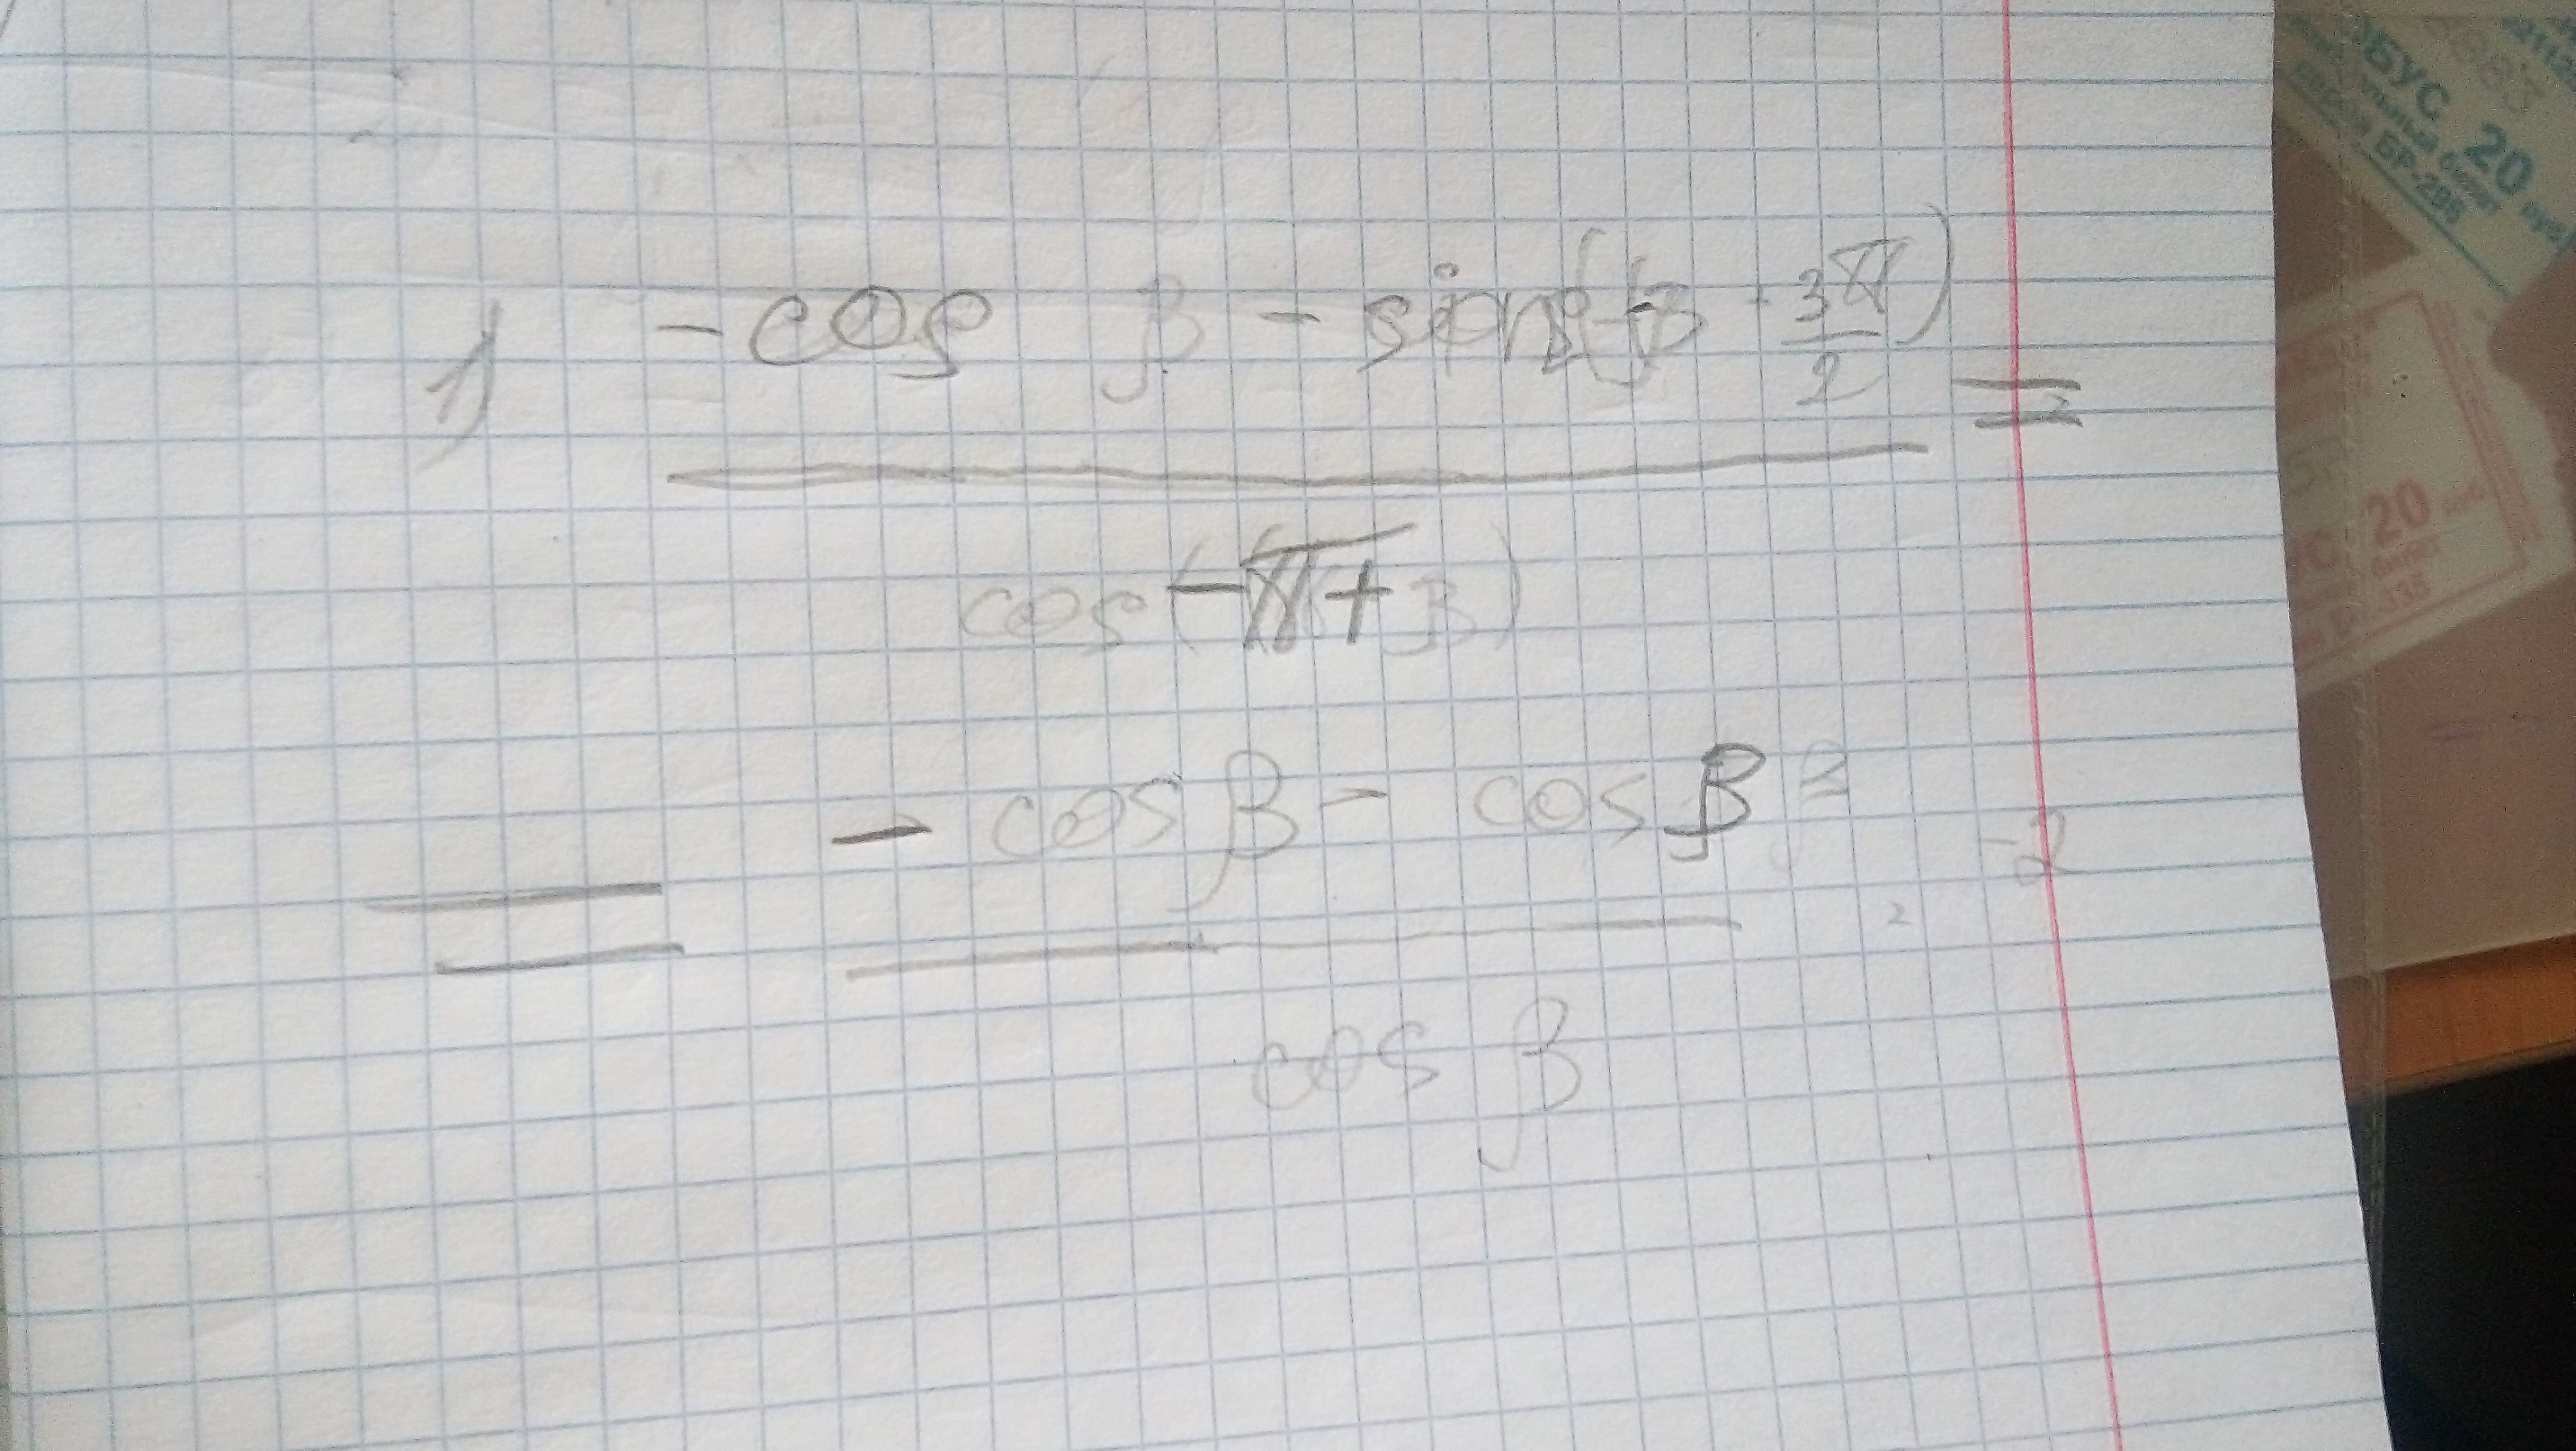 1) -cos β - sin(-β - 3π/2) =
cos(-π+β)
= - cos β - cos β = -2
cos β
ОБУС 20
БР-206
20